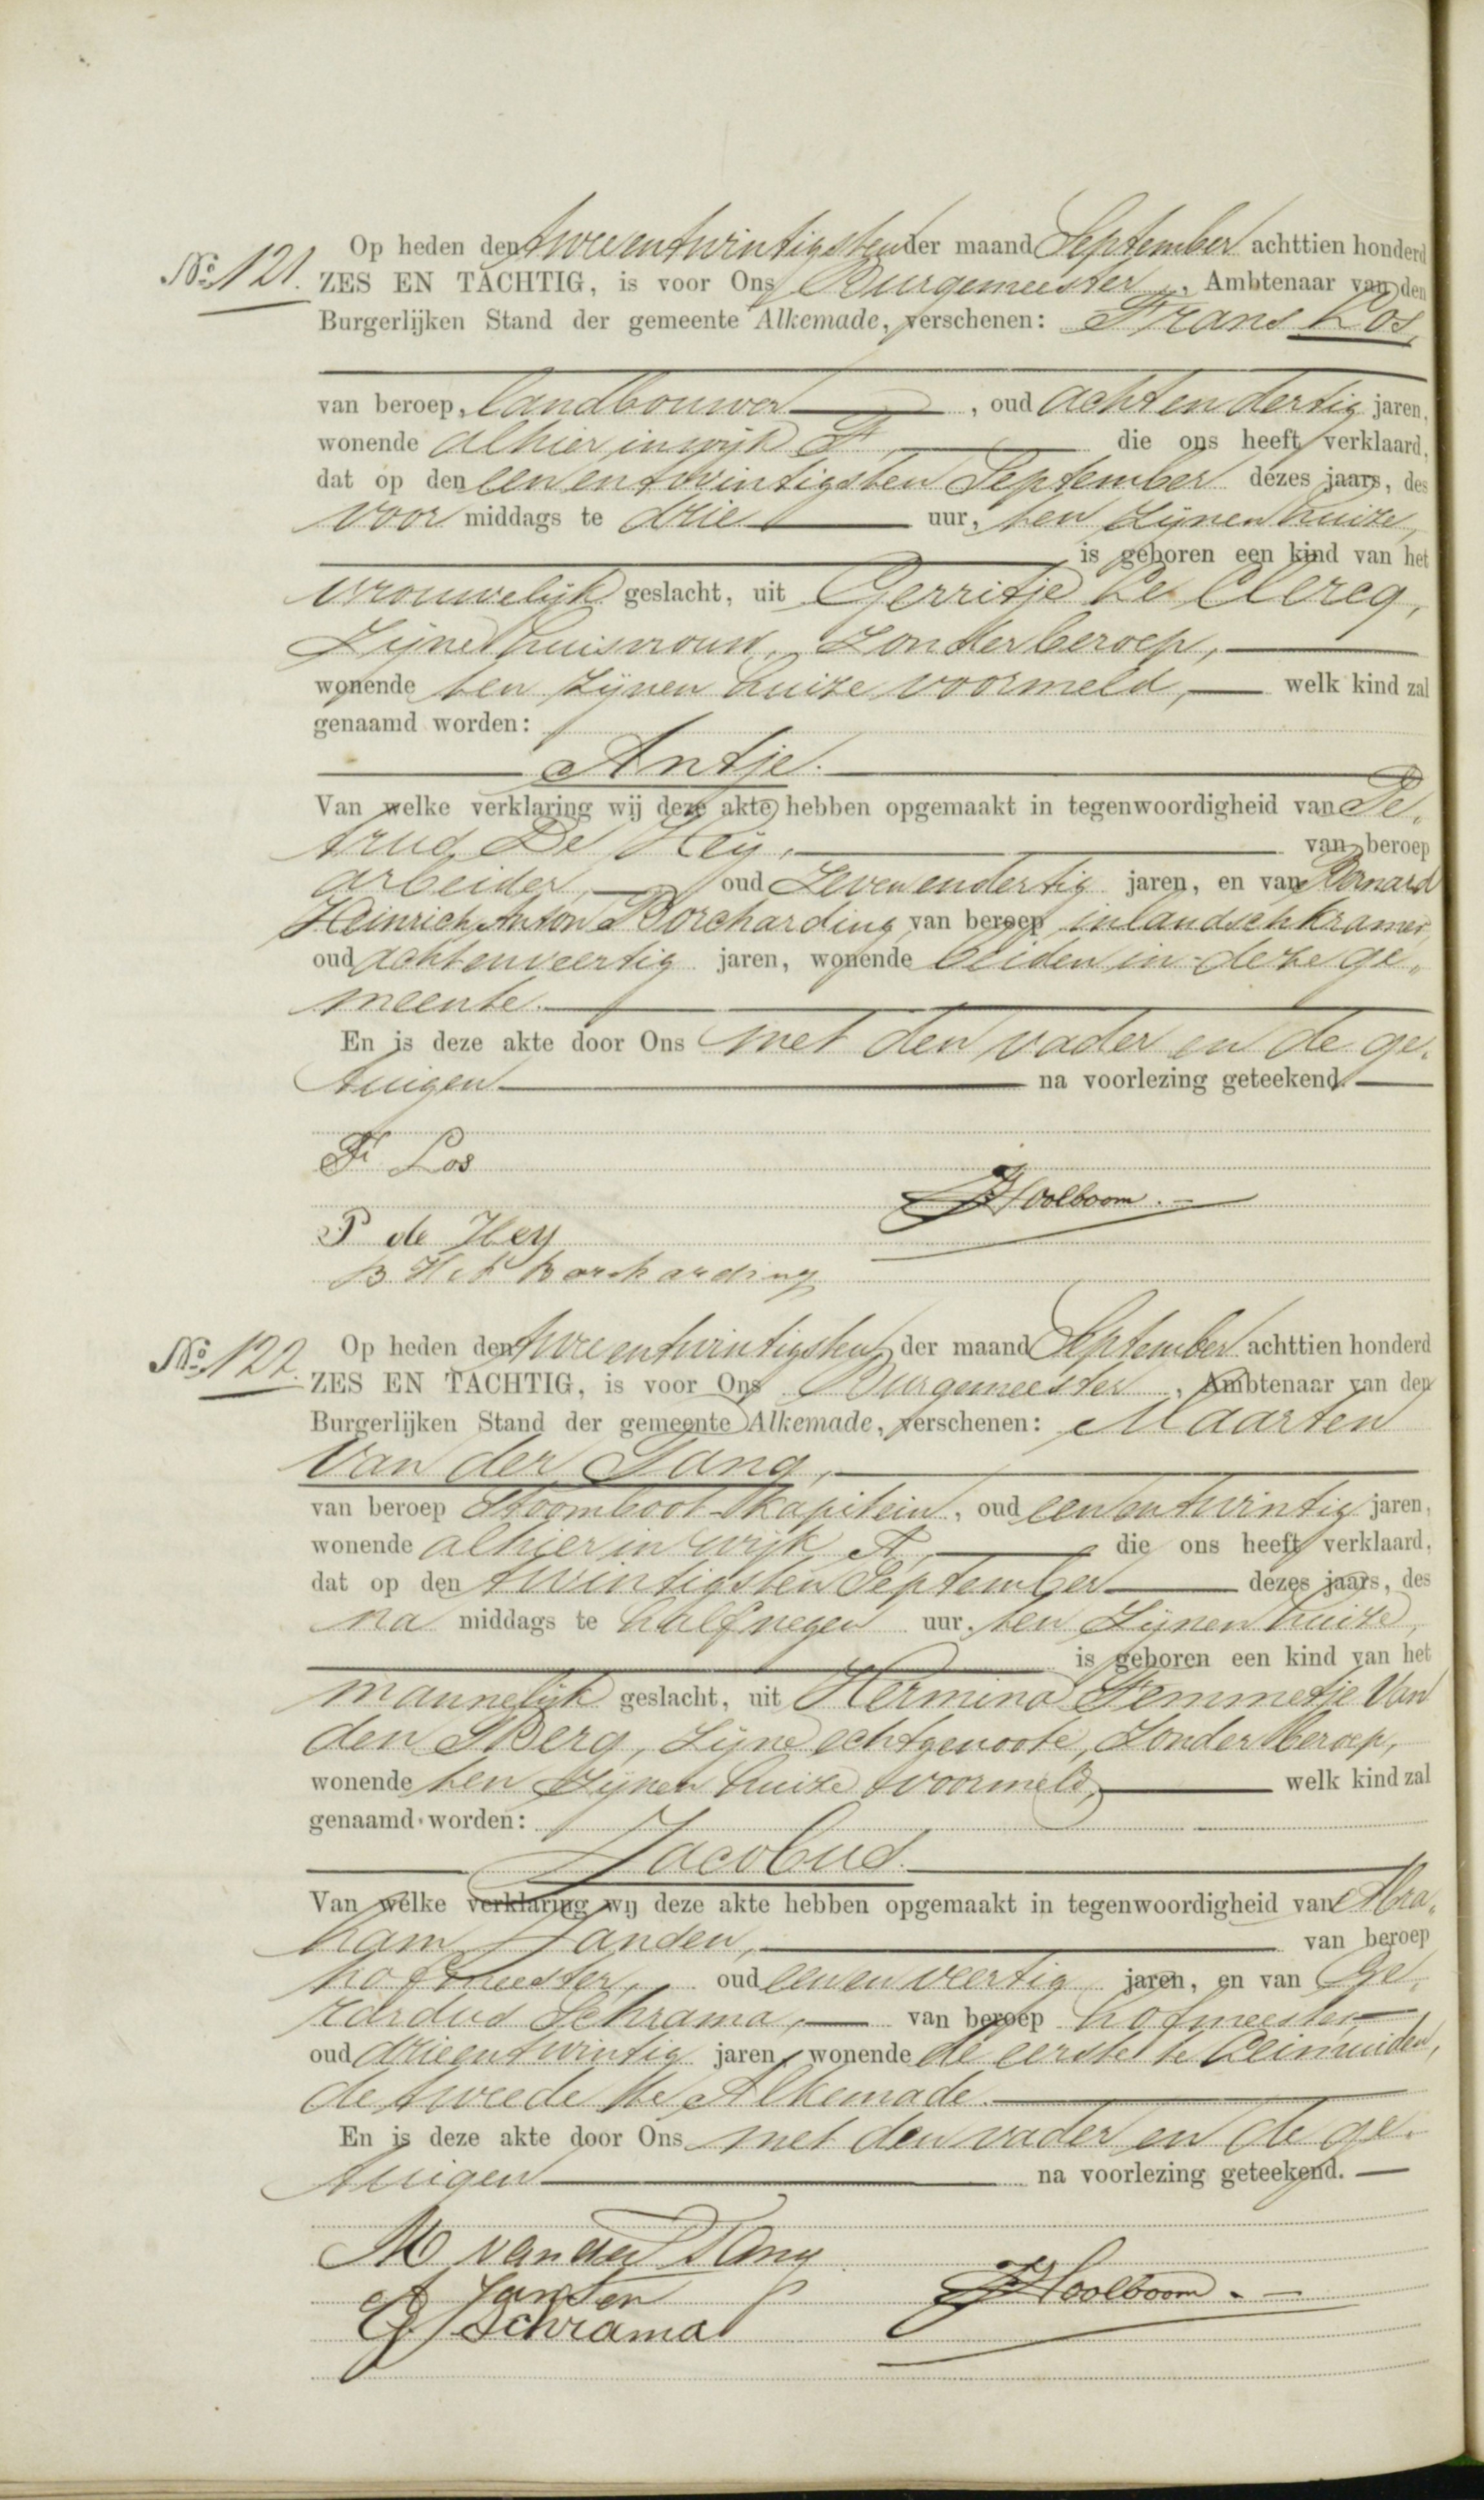 Op heden den tweeentwintigsten der maand September achttien honderd
No. 121. ZES EN TACHTIG, is voor Ons Burgemeester, Ambtenaar van den
Burgerlijken Stand der gemeente Alkemade, verschenen: Frans Los,
van beroep, landbouwer, oud achtendertig jaren,
wonende alhier in wijk F, die ons heeft verklaard,
dat op den eenentwintigsten September dezes jaars, des
voor middags te drie uur, ten zijnen huize,
is geboren een kind van het
vrouwelijk geslacht, uit Gerritje Le Clercq,
Zijne huisvrouw, zonder beroep,
wonende ten zijnen huize voormeld, welk kind zal
genaamd worden:
Antje.
Van welke verklaring wij deze akte hebben opgemaakt in tegenwoordigheid van Pe„
trus De Heij, van beroep
arbeider, oud zevenendertig jaren, en van Bernard
Heinrich Anton Borcharding van beroep inlandsch kramer,
oud achtenveertig jaren, wonende beiden in deze ge„
meente.
En is deze akte door Ons met den vader en de ge„
tuigen na voorlezing geteekend.
Fr Los
JHoolboom.
P de Heij
B H A Borcharding
Op heden den tweeentwintigsten der maand September achttien honderd
No. 122. ZES EN TACHTIG, is voor Ons Burgemeester, Ambtenaar van den
Burgerlijken Stand der gemeente Alkemade, verschenen: Maarten
Van der Tang,
van beroep Stoomboot-kapitein, oud eenentwintig jaren,
wonende alhier in wijk A, die ons heeft verklaard,
dat op den twintigsten September dezes jaars, des
na middags te half negen uur, ten zijnen huize,
is geboren een kind van het
mannelijk geslacht, uit Hermina Femmetje Van
den Berg, zijne echtgenoote, zonder beroep,
wonende ten zijnen huize voormeld, welk kind zal
genaamd worden:
Jacobus.
Van welke verklaring wij deze akte hebben opgemaakt in tegenwoordigheid van Abra„
ham Jansen, van beroep
hofmeester, oud eenenveertig jaren, en van Ge„
rardus Schrama, van beroep hofmeester
oud drieentwintig jaren, wonende de eerste te Leimuiden,
de tweede te Alkemade.
En is deze akte door Ons met den vader en de ge„
tuigen na voorlezing geteekend.
M van der Tang
A Jansen
JHoolboom.
G Schrama